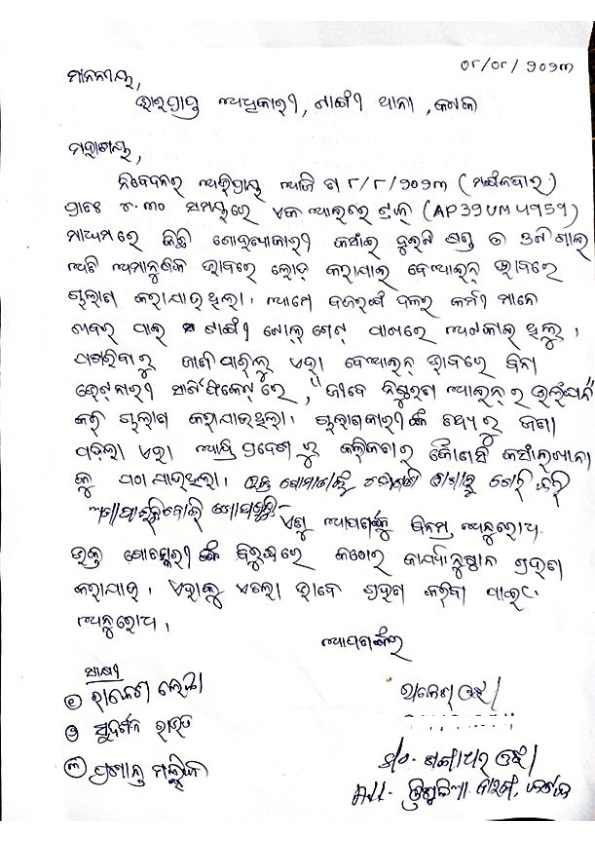 ୦୮/୦୮/୨୦୨୩
ମାନନୀୟ,
ଭାରପ୍ରାପ୍ତ ଅଧିକାରୀ, ଟାଙ୍ଗୀ ଥାନା, କଟକ
ମହାଶୟ,
ନିବେଦନର ଅଭିପ୍ରାୟ ଆଜି ତା ୮/୮/୨୦୨୩ (ମଙ୍ଗଳବାର)
ପ୍ରାତଃ ୪.୩୦ ସମୟରେ ଏକ ଆଇଚର ଟ୍ରକ୍ (AP39UM4959)
ମାଧ୍ୟମରେ କିଛି ଗୋରୁ ବେପାରୀ କଂସାଇ ଷଣ୍ଢ ଓ ଗାଈ
ଅତି ଅମାନୁଷିକ ଭାବରେ ଲୋଡ୍ କରାଯାଇ ବେଆଇନ୍ ଭାବରେ
ଚାଲାଣ କରାଯାଉଥିଲା। ଆମେ ବଜରଙ୍ଗ ଦଳର କର୍ମୀ ମାନେ
ଖବର ପାଇ ଟାଙ୍ଗୀ ଟୋଲ୍ ଗେଟ୍ ପାଖରେ ଅଟକାଇ ଥିଲୁ।
ପଚାରିବାରୁ ଜାଣିପାରିଲୁ ଏହା ବେଆଇନ୍ ଭାବରେ ବିନା
ଭେଟେନାରୀ ସାର୍ଟିଫିକେଟ୍ ରେ, "ଜୀବେ ନିଷ୍ଠୁରତା ଆଇନ୍ ର ଉଲଂଘନ"
କରି ଚାଲାଣ କରାଯାଉଥିଲା। ଚାଲାଣକାରୀଙ୍କ ଠାରୁ ଜଣା
ପଡ଼ିଲା ଏହା ଆନ୍ଧ୍ର ପ୍ରଦେଶ ରୁ କଲିକତାର କୌଣସି କଂସାଇଖାନା
କୁ ପଠାଯାଉଥିଲା। ଉକ୍ତ ଚୋରି କରି
ଏଣୁ ଆପଣଙ୍କୁ ବିନମ୍ର ଅନୁରୋଧ
ଉକ୍ତ ଗୋତସ୍କରୀଙ୍କ ବିରୁଦ୍ଧରେ କଠୋର କାର୍ଯ୍ୟାନୁଷ୍ଠାନ ଗ୍ରହଣ
କରାଯାଉ। ଏହାକୁ ଏତଲା ଭାବେ ଗ୍ରହଣ କରିବା ପାଇଁ
ଅନୁରୋଧ।
ଆପଣଙ୍କର
ସାକ୍ଷୀ
୧ ରାକେଶ ଲେଙ୍କା
୨ ସୁଦର୍ଶନ ରାଉତ
୩ ପ୍ରଶାନ୍ତ ମଲ୍ଲିକ
ରାକେଶ ଓଝା
S/o. ଗଙ୍ଗାଧର ଓଝା
At/-